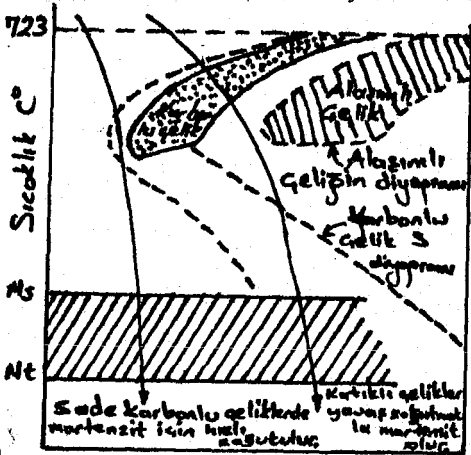 723
Sıcaklık C°
Karbon
lu çelik
Alaşımlı
Çelik
Alaşımlı
Çeliğin diyagramı
Karbonlu
Çelik S
diyagramı
Ms
Mt
Sade karbonlu çeliklerde
martenzit için hızlı
soğutulur.
Katıklı çelikler
yavaş soğutmak
la martenzit
olur.